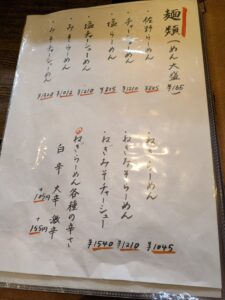 麺類（めん大盛 ¥165）
・佐野らーめん ¥805
・チャーシューめん ¥1210
・塩らーめん ¥805
・塩チャーシューめん ¥1210
・みそらーめん ¥1012
・みそチャーシューめん
・ねぎらーめん ¥1045
・ねぎみそらーめん ¥1210
・ねぎみそチャーシュー ¥1540
ねぎらーめん各種の辛さ
大辛 +105円
激辛 +155円